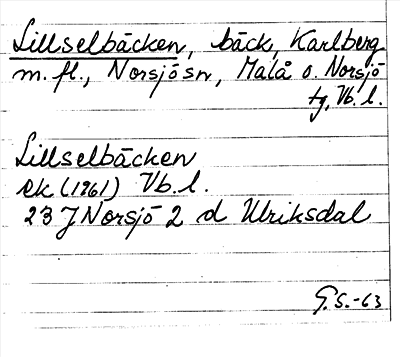 Lillselbäcken, bäck, Karlberg
m. fl., Norsjö sn, Malå o. Norsjö
tg, Vb. l.
Lillselbäcken
ek (1961) Vb. l.
23 J Norsjö 2 d Ulriksdal
G.S.-63